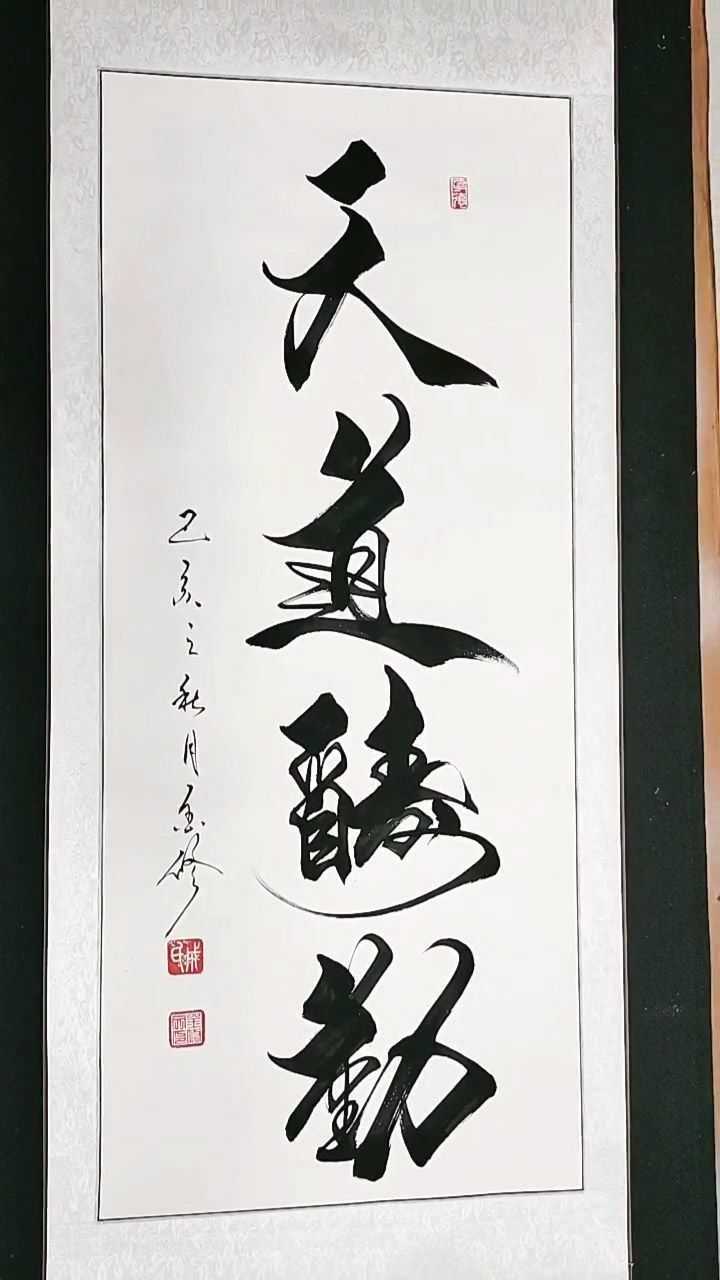 天道酬勤
己亥之秋月